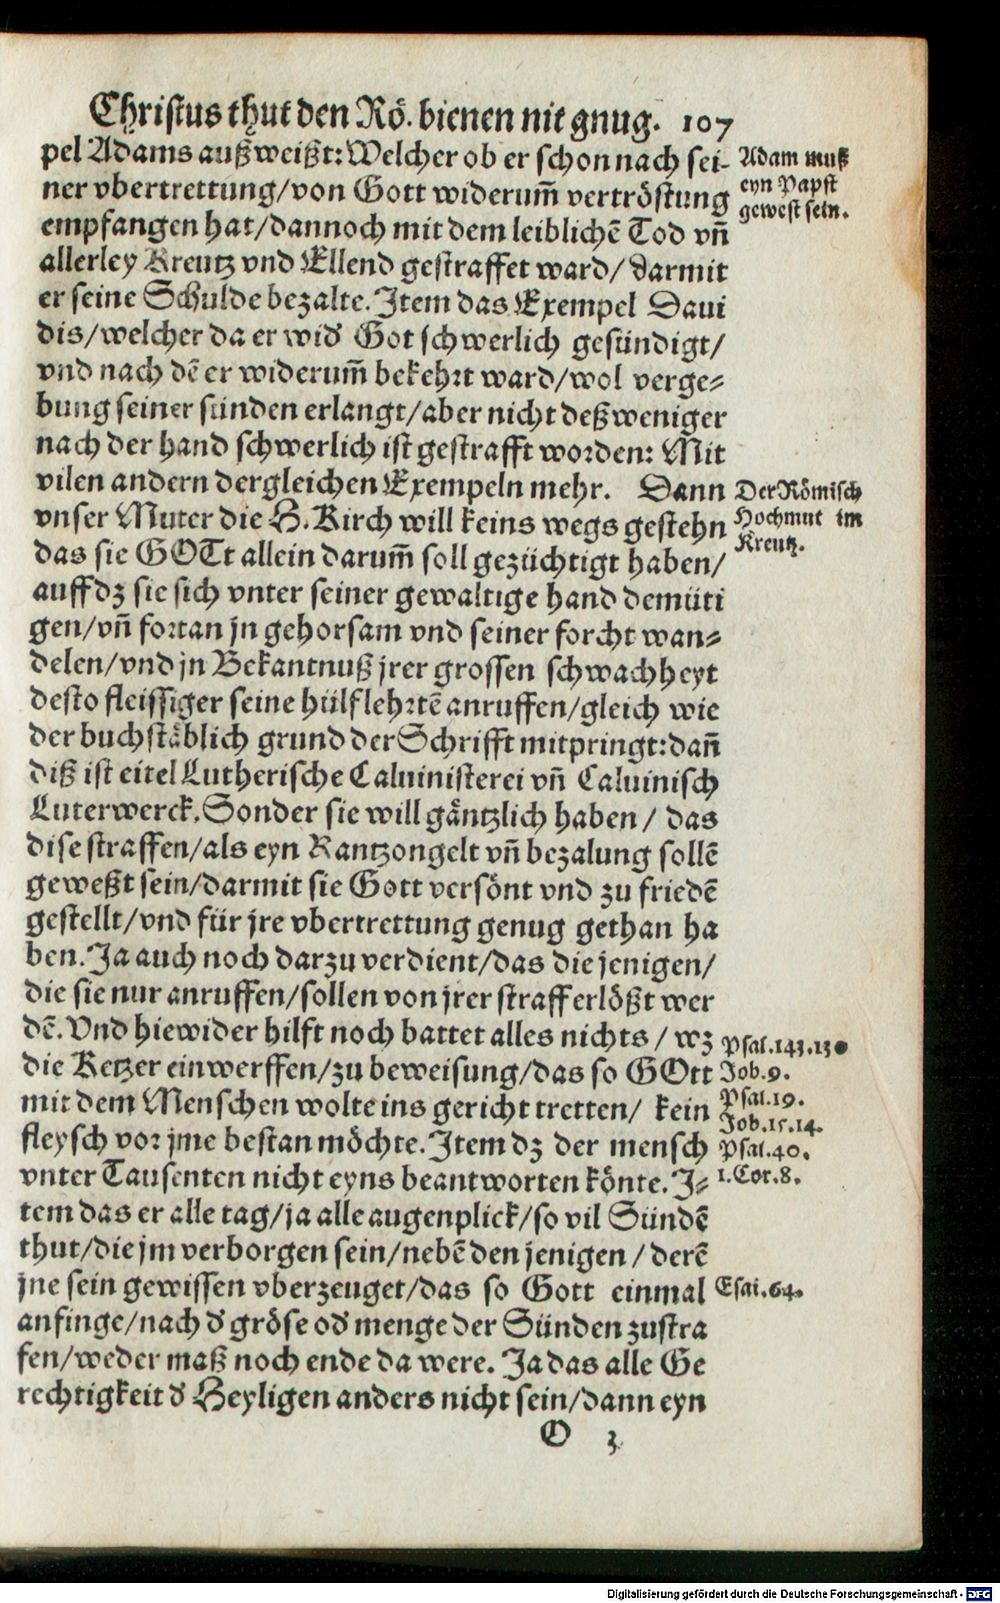 Christus thut den Rö. bienen nit gnug. 107
pel Adams außweißt: Welcher ob er schon nach sei-
ner vbertrettung/von Gott widerum̃ vertröstung
empfangen hat/dannoch mit dem leiblichē Tod vñ
allerley Kreutz vnd Ellend gestraffet ward/ darmit
er seine Schulde bezalte. Item das Exempel Daui
dis/welcher da er wid' Got schwerlich gesündigt/
vnd nach dē er widerum̃ bekehrt ward/wol verge-
bung seiner sünden erlangt/aber nicht deßweniger
nach der hand schwerlich ist gestrafft worden: Mit
vilen andern dergleichen Exempeln mehr. Dann
vnser Muter die H. Kirch will keins wegs gestehn
das sie GOTt allein darum̃ soll gezüchtigt haben/
auff dz sie sich vnter seiner gewaltige hand demüti
gen/vñ fortan jn gehorsam vnd seiner forcht wan-
delen/vnd jn Bekantnuß jrer grossen schwachheyt
desto fleissiger seine hülf lehrtē anruffen/gleich wie
der buchstäblich grund der Schrifft mitpringt: dañ
diß ist eitel Lutherische Caluinisterei vñ Caluinisch
Luterwerck. Sonder sie will gäntzlich haben / das
dise straffen/als eyn Rantzongelt vñ bezalung sollē
geweßt sein/darmit sie Gott versönt vnd zu friedē
gestellt/vnd für jre vbertrettung genug gethan ha
ben. Ja auch noch darzu verdient/das die jenigen/
die sie nur anruffen/sollen von jrer straff erlößt wer
dē. Vnd hiewider hilft noch battet alles nichts / wz
die Ketzer einwerffen/zu beweisung/das so GOtt
mit dem Menschen wolte ins gericht tretten/ kein
fleysch vor jme bestan möchte. Item dz der mensch
vnter Tausenten nicht eyns beantworten könte. J-
tem das er alle tag/ja alle augenplick/so vil Sündē
thut/die jm verborgen sein/nebē den jenigen / derē
jne sein gewissen vberzeuget/das so Gott einmal
anfinge/nach d' gröse od' menge der Sünden zustra
fen/weder maß noch ende da were. Ja das alle Ge
rechtigkeit d' Heyligen anders nicht sein/dann eyn
O 3
Adam muß
eyn Papst
gewest sein.
Der Römisch
Hochmut im
Kreutz.
Psal.143.13
Job.9.
Psal.19.
Job.15.14.
Psal.40.
1.Cor.8.
Esai.64.
Digitalisierung gefördert durch die Deutsche Forschungsgemeinschaft - DFG